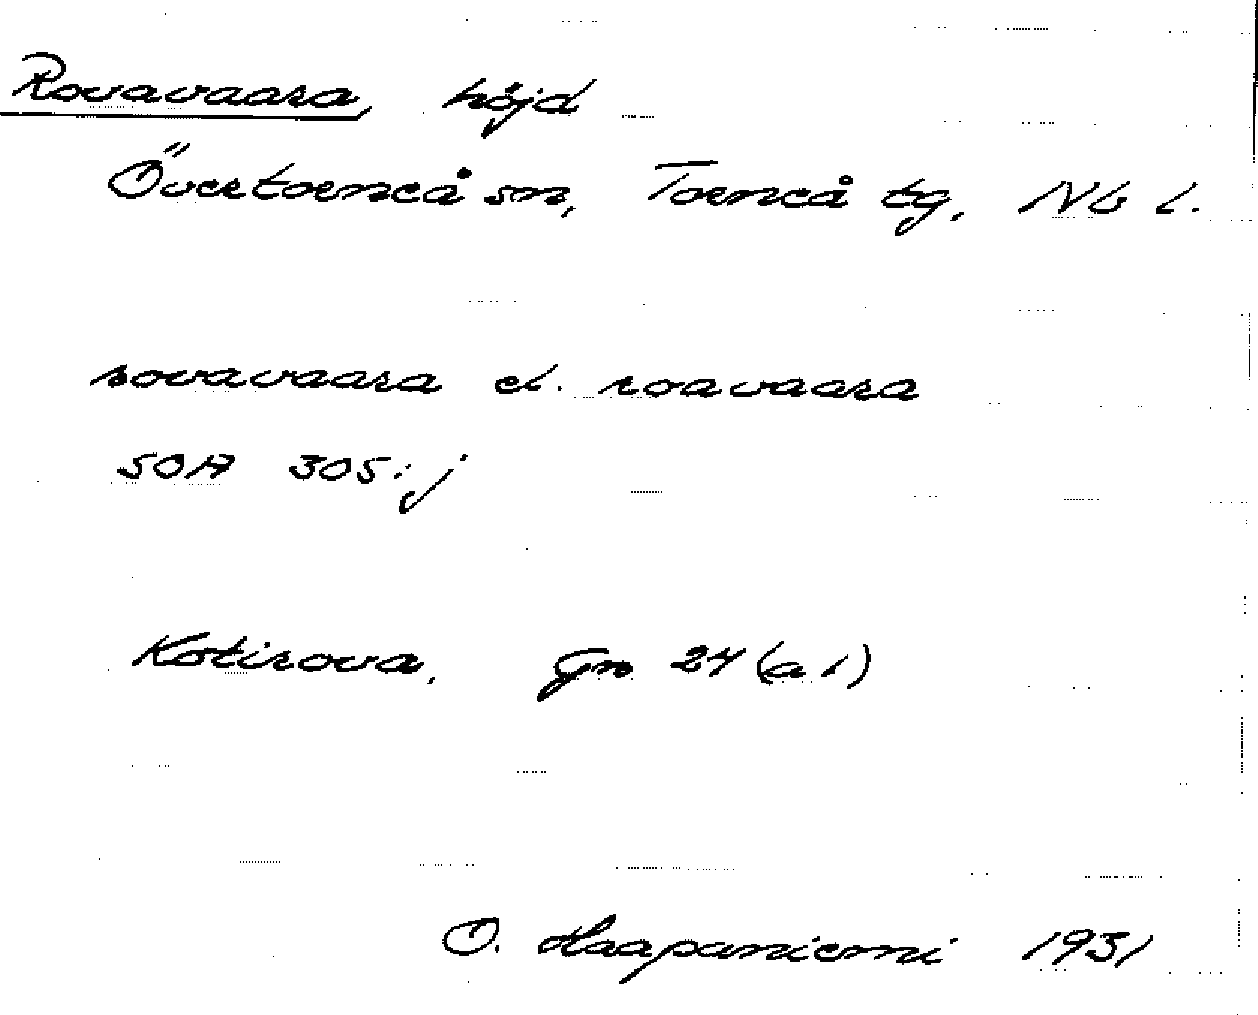 Rovavaara, höjd
Övertorneå sn, Torneå tg, Nb l.
rovavaara el. roavaara
SOA 305:j
Kotirova, Gn 24 (a 1)
O. Haapaniemi 1931